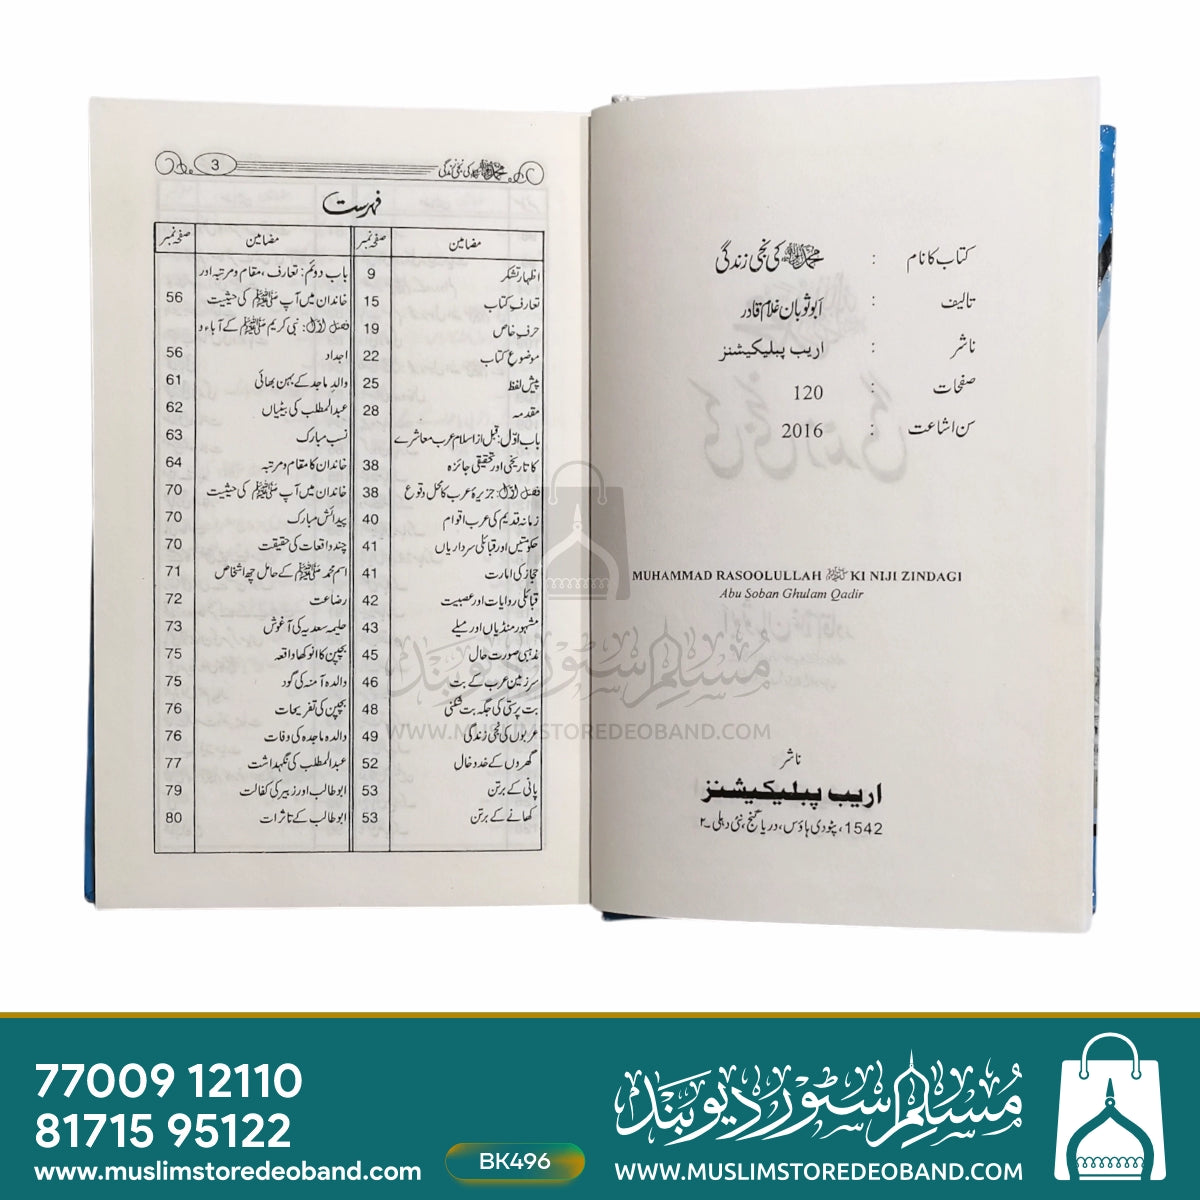 کتاب کا نام : محمد ﷺ کی نجی زندگی
تالیف : ابو ثوبان غلام قادر
ناشر : اریب پبلیکیشنز
صفحات : 120
سن اشاعت : 2016
MUHAMMAD RASOOLULLAH ﷺ KI NIJI ZINDAGI
Abu Soban Ghulam Qadir
ناشر
اریب پبلیکیشنز
1542، پٹودی ہاؤس، دریا گنج، نئی دہلی ۲
محمد ﷺ کی نجی زندگی 3
فہرست
مضامین صفحہ نمبر
اظہار تشکر 9
تعارف کتاب 15
حرف خاص 19
موضوع کتاب 22
پیش لفظ 25
مقدمہ 28
باب اوّل: قبل از اسلام عرب معاشرے
کا تاریخی اور تحقیقی جائزہ 38
فصل اوّل: جزیرۂ عرب کا محل وقوع 38
زمانہ قدیم کی عرب اقوام 40
حکومتیں اور قبائلی سرداریاں 41
حجاز کی امارت 41
قبائلی روایات اور عصبیت 42
مشہور منڈیاں اور میلے 43
مذہبی صورت حال 45
سرزمین عرب کے بت 46
بت پرستی کی جگہ بت شکنی 48
عربوں کی نجی زندگی 49
گھروں کے خدوخال 52
پانی کے برتن 53
کھانے کے برتن 53
مضامین صفحہ نمبر
باب دوئم: تعارف، مقام و مرتبہ اور
خاندان میں آپ ﷺ کی حیثیت 56
فصل اوّل: نبی کریم ﷺ کے آباء و
اجداد 56
والد ماجد کے بہن بھائی 61
عبدالمطلب کی بیٹیاں 62
نسب مبارک 63
خاندان کا مقام و مرتبہ 64
خاندان میں آپ ﷺ کی حیثیت 70
پیدائش مبارک 70
چند واقعات کی حقیقت 70
اسم محمد ﷺ کے حامل چھ اشخاص 71
رضاعت 72
حلیمہ سعدیہ کی آغوش 73
بچپن کا انوکھا واقعہ 75
والدہ آمنہ کی گود 75
بچپن کی تفریحات 76
والدہ ماجدہ کی وفات 76
عبدالمطلب کی نگہداشت 77
ابوطالب اور زبیر کی کفالت 79
ابوطالب کے تاثرات 80
مسلم سٹور دیوبند
WWW.MUSLIMSTOREDEOBAND.COM
77009 12110
81715 95122
www.muslimstoredeoband.com
BK496
مسلم سٹور دیوبند
WWW.MUSLIMSTOREDEOBAND.COM